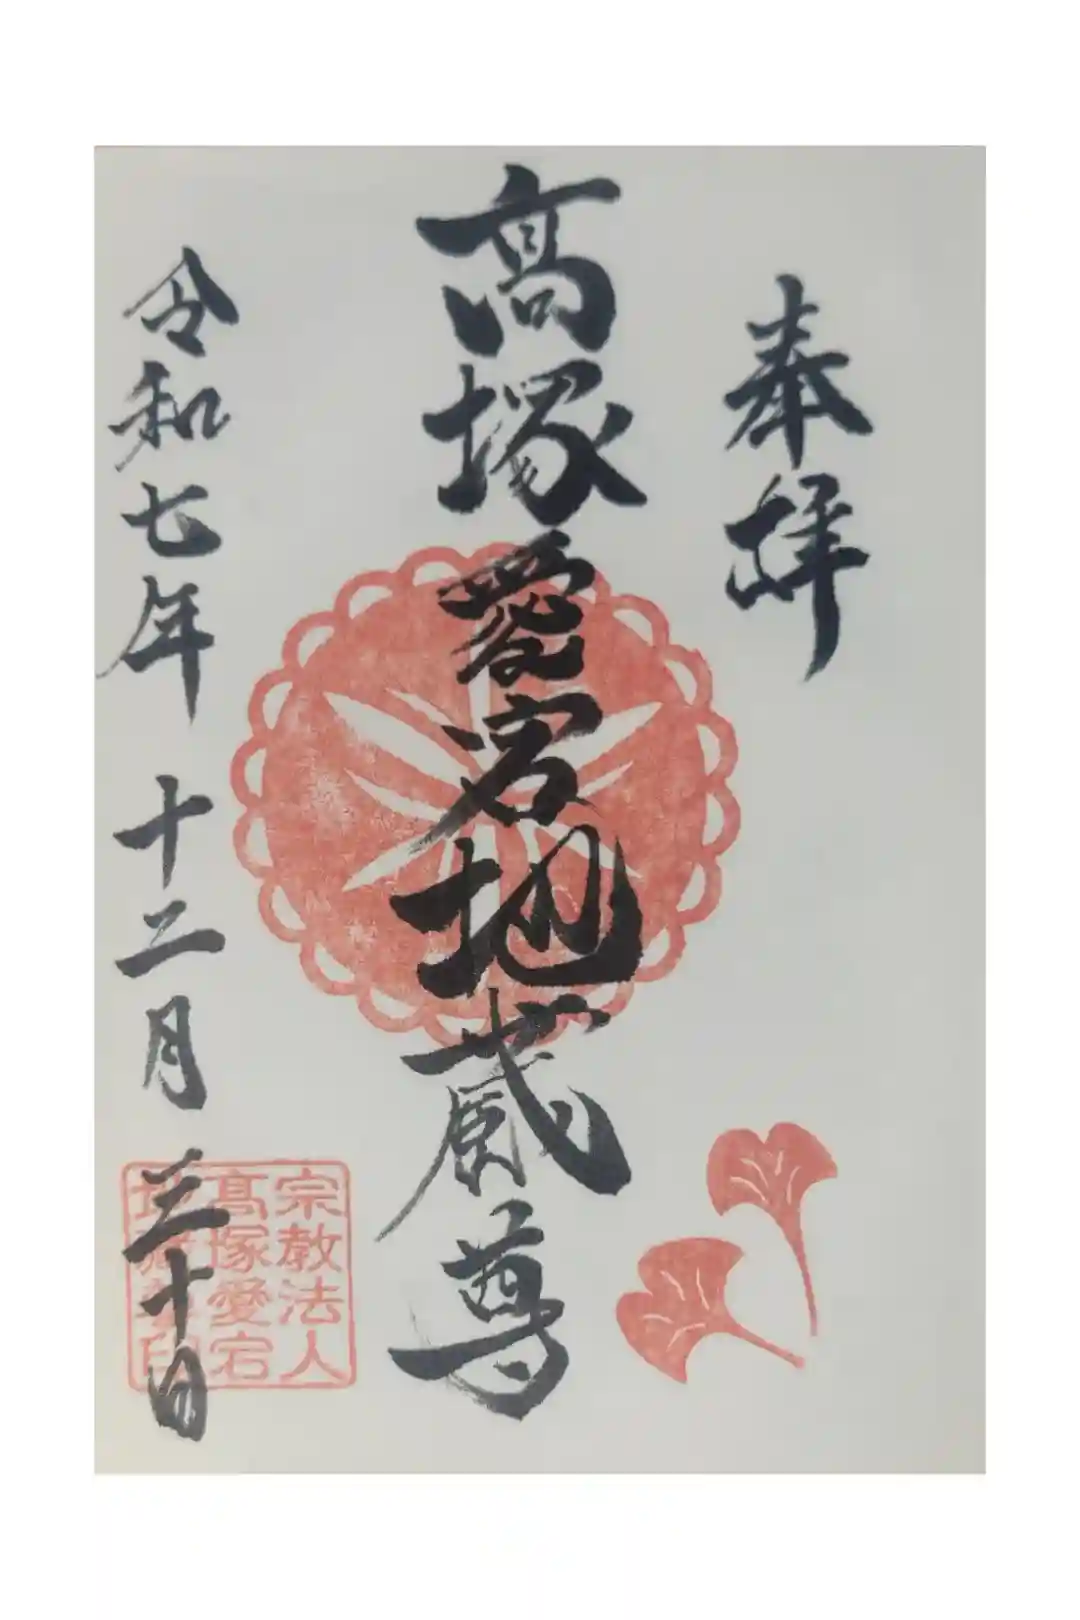 奉拝
髙塚愛宕地蔵尊
令和七年十二月三十日
宗教法人
髙塚愛宕
地蔵尊印